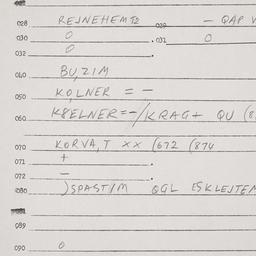 028 REJNEHEMT2 029 — QAP V
030 0 . 031 0
032 0
040 BU,ZIM
050 KOLNER = —
060 K8ELNER=-/KRAG+ QU (8
070 KORVA,T XX (672 (874
071 + .
072 — .
080 )SPAST/M QGL ESKLEJTEM
089
090 0